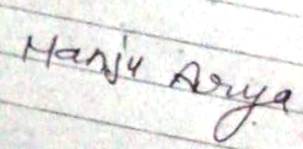 Manju Arya